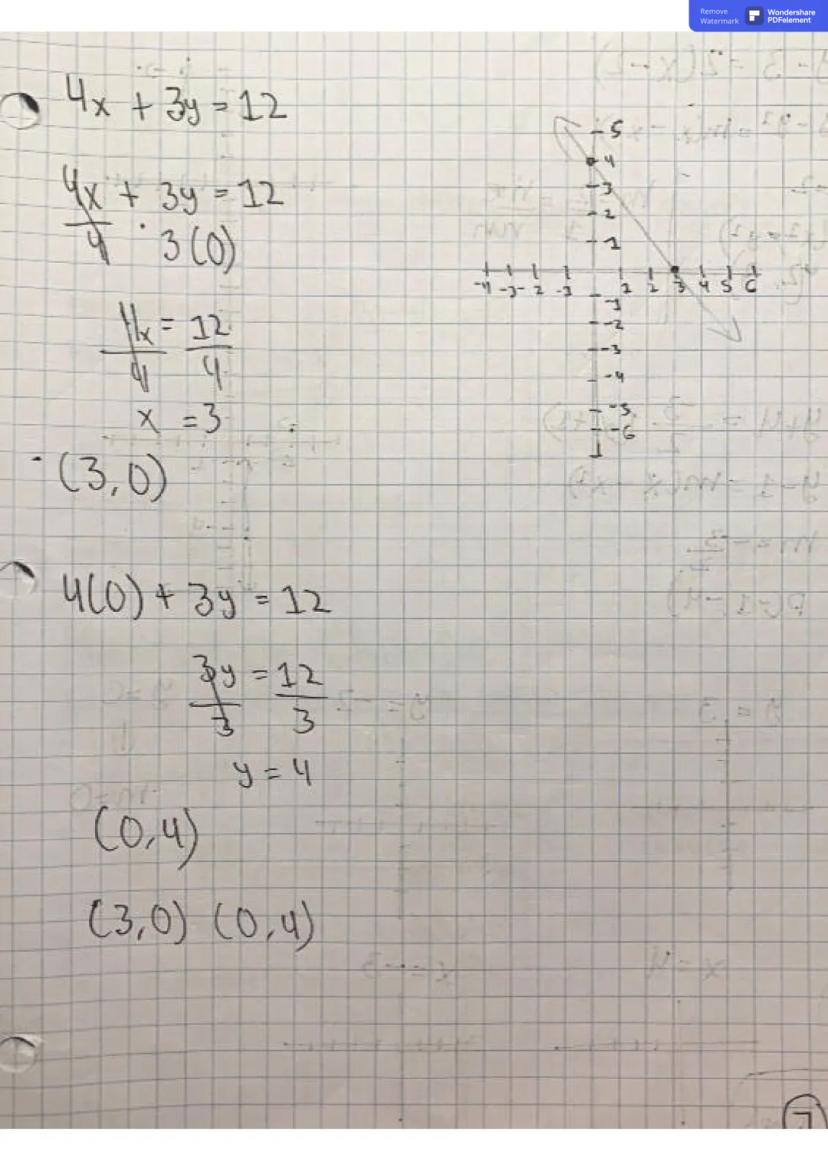 Remove Watermark
Wondershare PDFelement
4x + 3y = 12
4x + 3y = 12
4 · 3(0)
4x = 12
4 4
x = 3
(3,0)
4(0) + 3y = 12
3y = 12
3 3
y = 4
(0,4)
(3,0) (0,4)
5
4
3
2
1
-4 -3 -2 -1 1 2 3 4 5 6
-1
-2
-3
-4
-5
-6
7